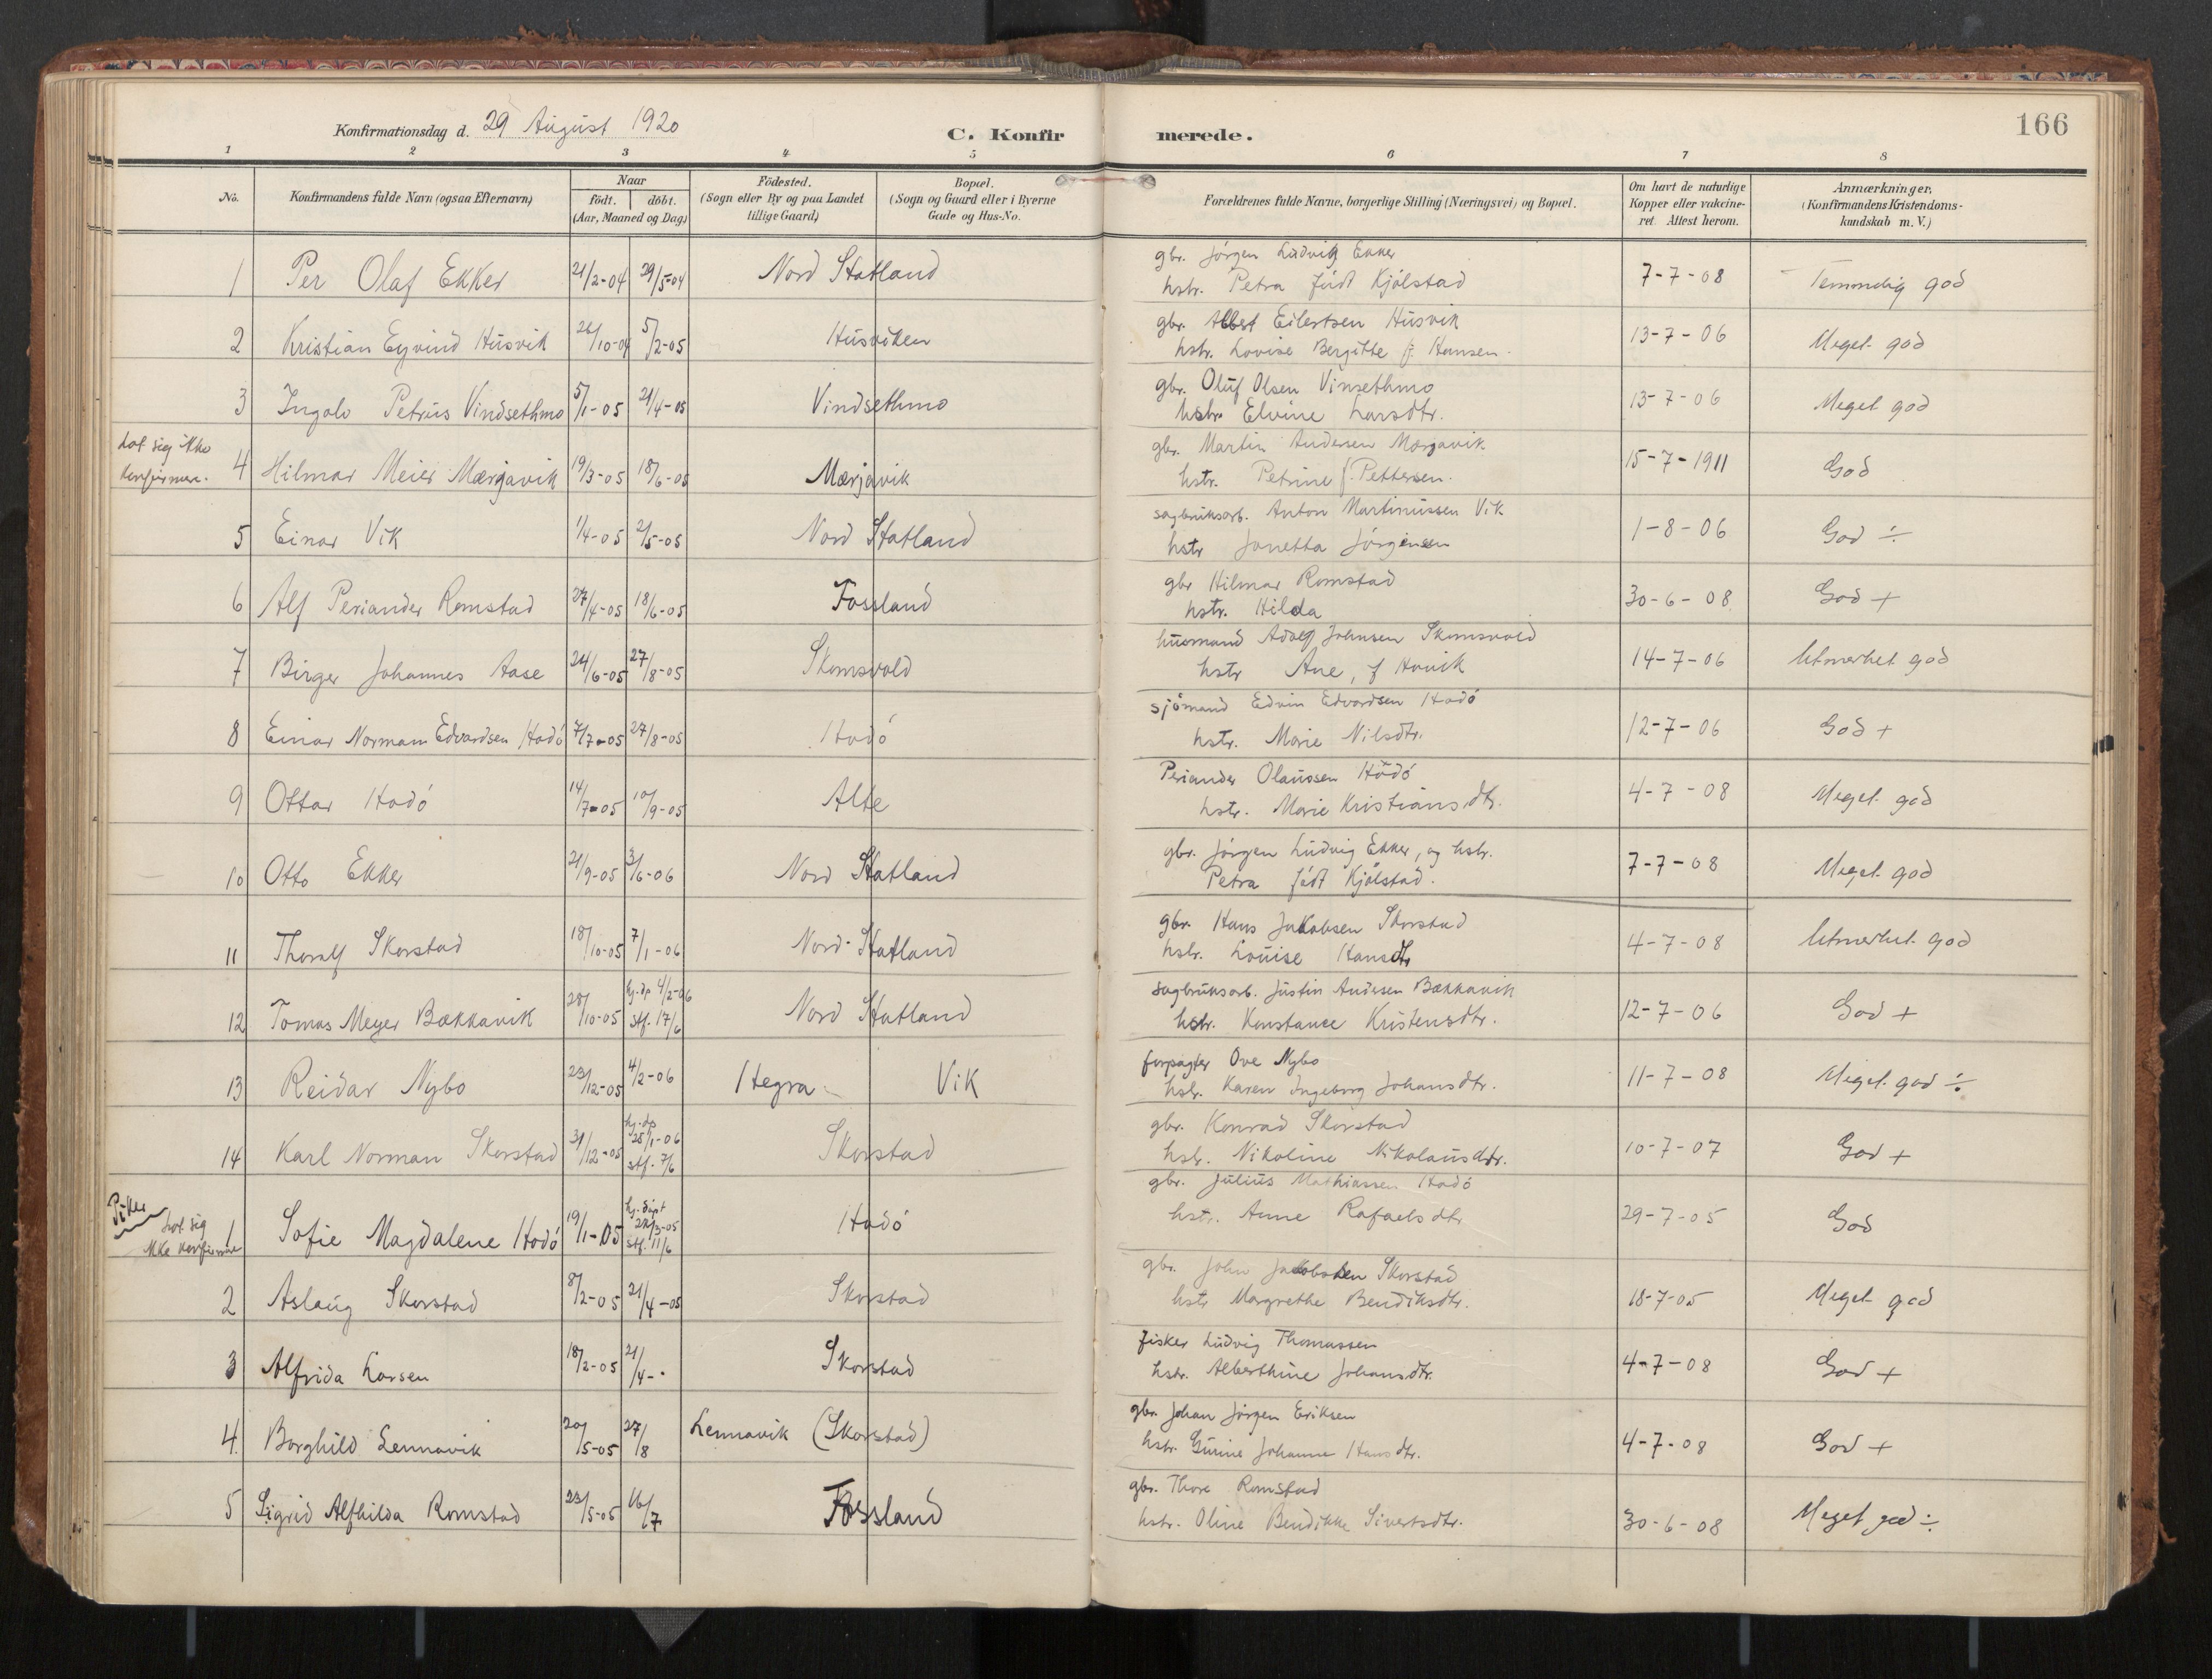 166
Konfirmationsdag d. 29 August 1920
C. Konfirmerede.
1 2 3 4 5 6 7 8
No.
Konfirmandens fulde Navn (ogsaa Efternavn)
Naar
födt. döbt.
(Aar, Maaned og Dag)
Födested.
(Sogn eller By og paa Landet
tillige Gaard)
Bopæl.
(Sogn og Gaard eller i Byerne
Gade og Hus-No.
Forældrenes fulde Navne, borgerlige Stilling (Næringsvei) og Bopæl.
Om havt de naturlige
Kopper eller vakcine-
ret. Attest herom.
Anmærkninger.
(Konfirmandens Kristendoms-
kundskab m. V.)
1 Per Olaf Ekker 21/2-04 29/5-04 Nord Statland
gbr. Jörgen Ludvig Ekker
hstr. Petra födt Kjölstad 7-7-08 Temmelig god
2 Kristian Eyvind Husvik 26/10-04 5/2-05 Husviken
gbr. Albert Eilertsen Husvik
hstr. Lovise Bergitte f. Hansen 13-7-06 Meget god
3 Ingolv Petrus Vindsethmo 5/1-05 21/4-05 Vindsethmo
gbr. Oluf Olsen Vinsethmo
hstr. Elvine Larsdtr. 13-7-06 Meget god
Lot sig ikke
konfirmere.
4 Hilmar Meier Mærjavik 19/3-05 18/6-05 Mærjavik
gbr. Martin Andersen Mærjavik
hstr. Petrine f. Pettersen. 15-7-1911 God
5 Einar Vik 1/4-05 2/5-05 Nord Statland
sagbruksarb. Anton Martinussen Vik
hstr Janetta Jörgensen 1-8-06 God ÷
6 Alf Periander Romstad 27/4-05 18/6-05 Fossland
gbr Hilmar Romstad
hstr. Hilda 30-6-08 God +
7 Birger Johannes Aase 24/6-05 27/8-05 Skomsvold
husmand Adolf Johnsen Skomsvold
hstr Ane, f Hovik 14-7-06 Utmerket god
8 Einar Norman Edvardsen Hodö 7/7-05 27/8-05 Hodö
sjömand Edvin Edvardsen Hodö
hstr. Marie Nilsdtr. 12-7-06 God +
9 Ottar Hodö 14/7-05 10/9-05 Alte
Periander Olaussen Hödö
hstr. Marie Kristiansdtr. 4-7-08 Meget god
10 Otto Ekker 21/9-05 3/6-06 Nord Statland
gbr. Jörgen Ludvig Ekker, og hstr.
Petra födt Kjölstad. 7-7-08 Meget god
11 Thoralf Skorstad 18/10-05 7/1-06 Nord-Statland
gbr. Hans Jakobsen Skorstad
hstr. Louise Hansdtr 4-7-08 Utmerket god
12 Tomas Meyer Bækkavik 28/10-05 hj.dp 4/2-06
stf. 17/6 Nord Statland
sagbruksarb. Justin Andersen Bækkavik
hstr. Konstance Kristensdtr. 12-7-06 God +
13 Reidar Nybo 23/12-05 4/2-06 Hegra Vik
forpagter Ove Nybo
hstr. Karen Ingeborg Johansdtr. 11-7-08 Meget god ÷
14 Karl Norman Skorstad 31/12-05 hj.dp
28/1-06
stf. 7/6 Skorstad
gbr. Konrad Skorstad
hstr. Nikoline Nikolausdtr. 10-7-07 God +
Piker
Lot sig
ikke konfirmere
1 Sofie Magdalene Hodö 19/1-05 hj.döpt
stf. 11/6 Hodö
gbr. Julius Mathiassen Hodö
hstr. Anne Rafaelsdtr 29-7-05 God
2 Aslaug Skorstad 8/2-05 21/4-05 Skorstad
gbr. John Jakobsen Skorstad
hstr Margrethe Bendiksdtr. 18-7-05 Meget god
3 Alfrida Larsen 18/2-05 21/4-. Skorstad
fisker Ludvig Thomassen
hstr. Alberthine Johansdtr. 4-7-08 God +
4 Borghild Lennavik 20/5-05 27/8 Lennavik (Skorstad)
gbr. Johan Jörgen Eriksen
hstr. Gunine Johanne Hansdtr. 4-7-08 God +
5 Sigrid Alfhilda Romstad 23/5-05 16/7 Fossland
gbr. Thore Romstad
hstr. Oline Bendikke Sivertsdtr. 30-6-08 Meget god ÷